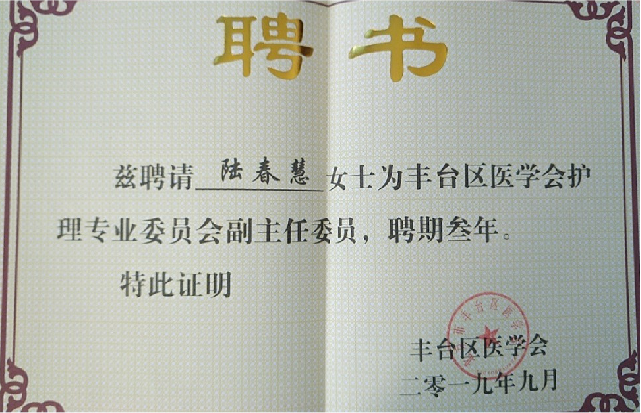 聘书
兹聘请 陆春慧 女士为丰台区医学会护
理专业委员会副主任委员，聘期叁年。
特此证明
丰台区医学会
二零一九年九月